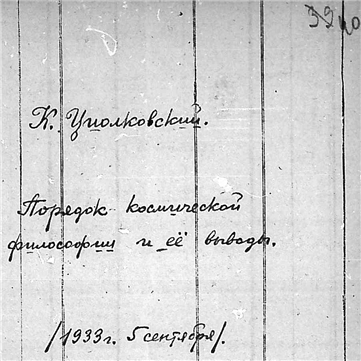 К. Циолковский.
Порядок космической
философии и её выводы.
/1933г. 5 сентября/.